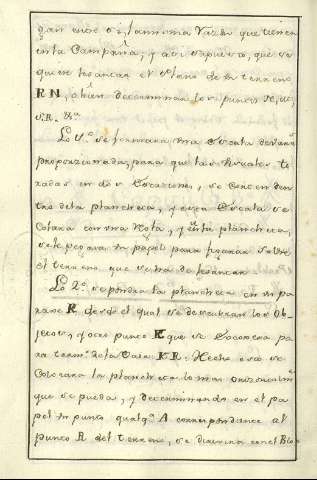 gan entre si, la misma razon que tienen
en la Campaña, y asi supuesto, que se
quiere levantar el Plano de un terreno
R N, se han de determinar los puntos
V.R. &ª
Lo 1º se formara una Escala de varas
proporzionada, para que las visuales ti-
radas en dos Estaciones, se crucen den-
tro de la plancheta, y esta Escala se
notara con una Nota, y en la plancheta,
se le pegara un papel para figurar sobre
el terreno que se ha de levantar
Lo 2º se pondra la plancheta en un pa-
rage R desde el qual se descubran los Ob-
jetos, y otro punto K que se escogera pa-
ra term.º de la Base K R. Hecho esto se
colocara la plancheta lo mas orizontalm.te
que se pueda, y determinando en el pa-
pel un punto qualq.ª A correspondiente al
punto R del terreno, se dirigira con el